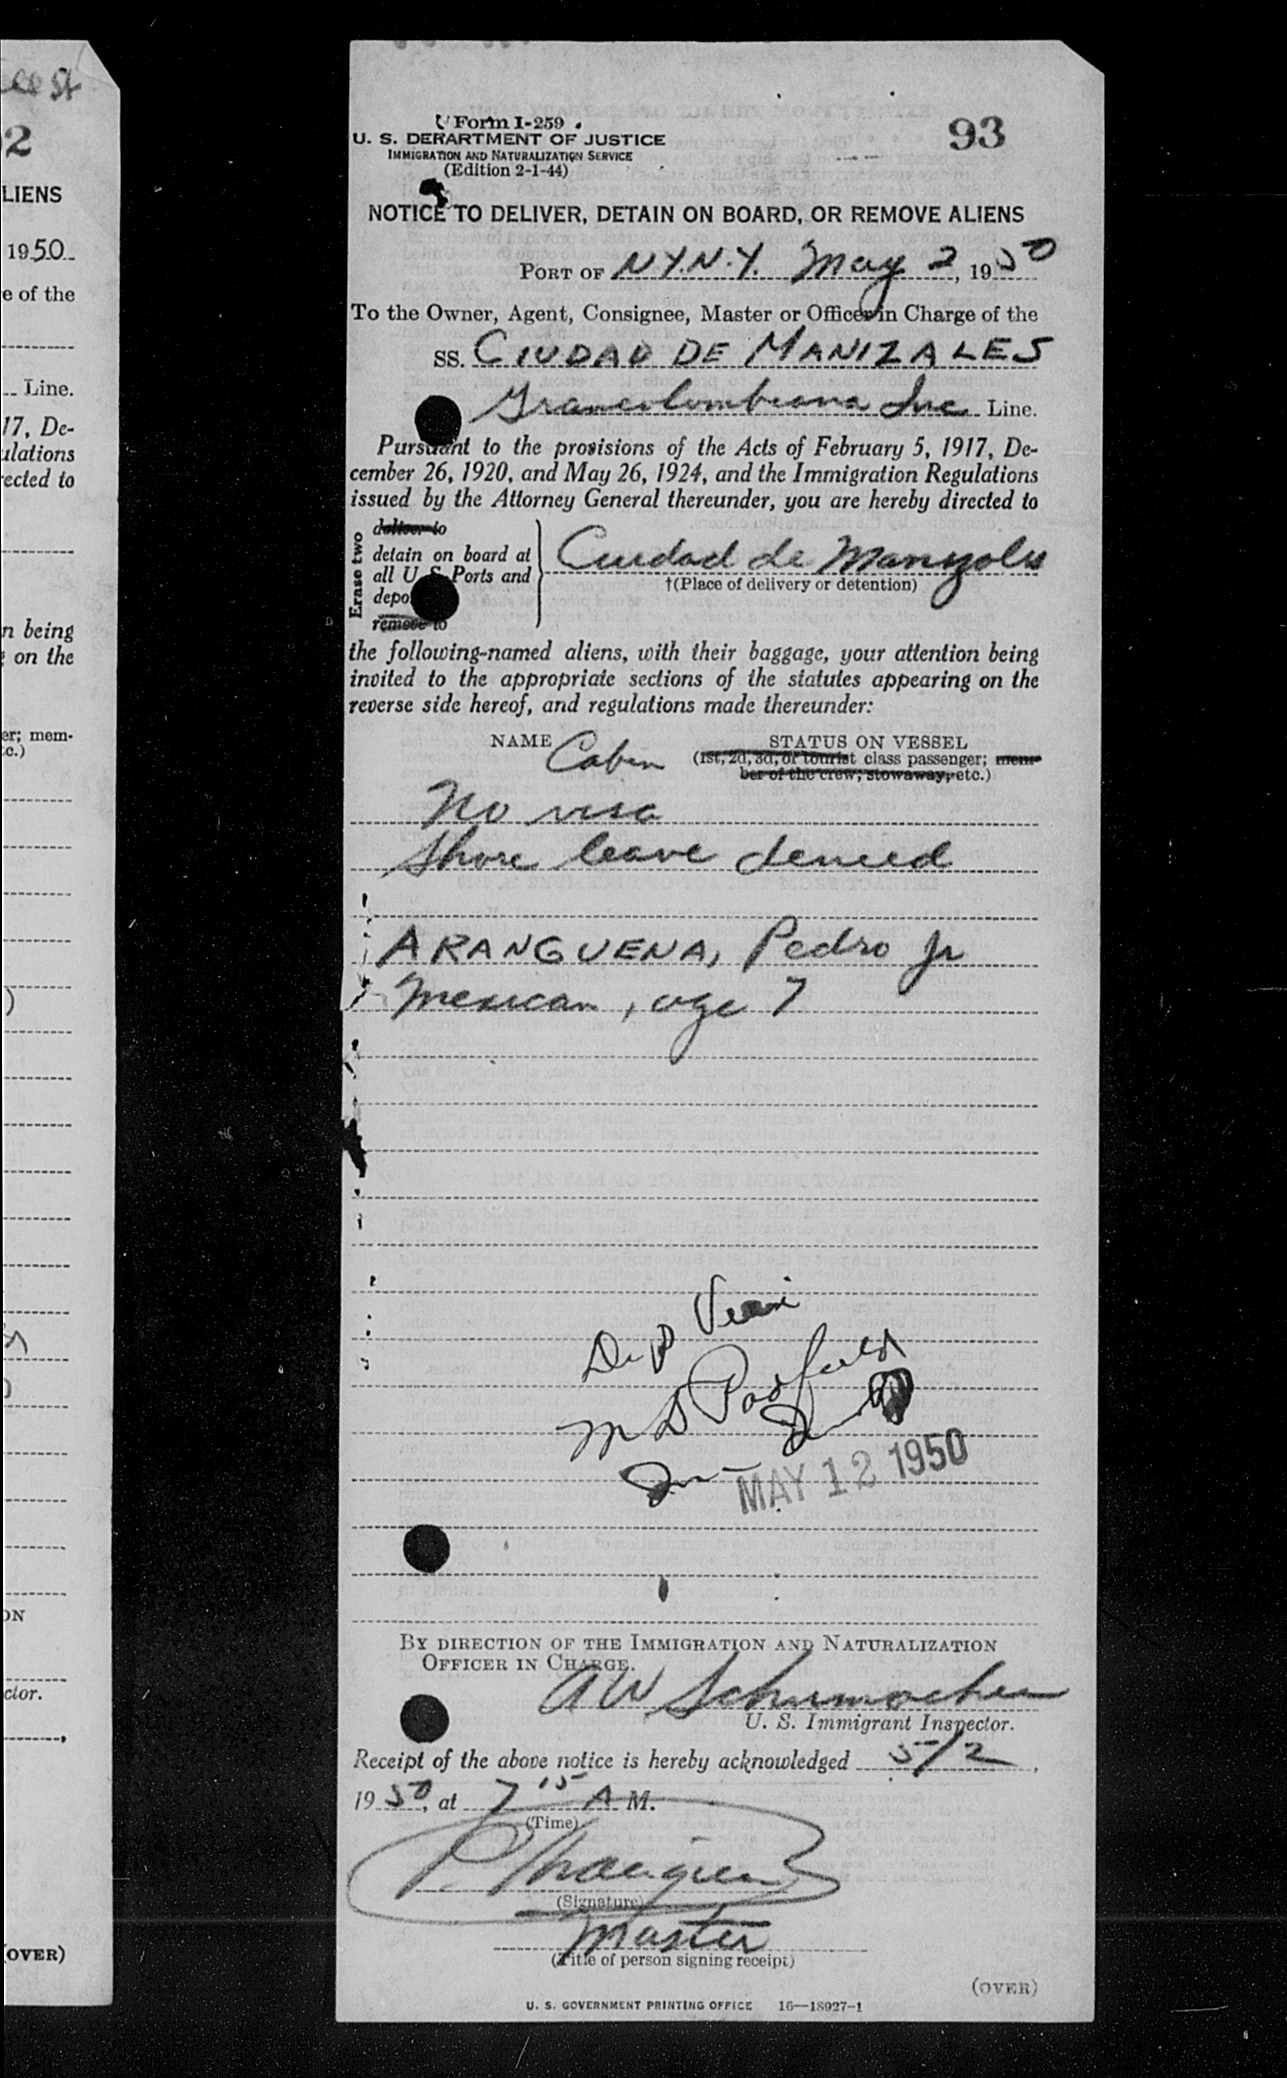 est
2
LIENS
1950
e of the
Line.
17, De-
ulations
ected to
n being
on the
er; mem-
c.)
ON
ctor.
(OVER)
Form I-259
93
U. S. DEPARTMENT OF JUSTICE
IMMIGRATION AND NATURALIZATION SERVICE
(Edition 2-1-44)
NOTICE TO DELIVER, DETAIN ON BOARD, OR REMOVE ALIENS
PORT OF N.Y.N.Y. May 2, 1950
To the Owner, Agent, Consignee, Master or Officer in Charge of the
SS. CIUDAD DE MANIZALES
Grancolombiana Inc. Line.
Pursuant to the provisions of the Acts of February 5, 1917, De-
cember 26, 1920, and May 26, 1924, and the Immigration Regulations
issued by the Attorney General thereunder, you are hereby directed to
Erase two
deliver to
detain on board at
all U. S. Ports and
depo
remove to
Ciudad de Manizales
†(Place of delivery or detention)
the following-named aliens, with their baggage, your attention being
invited to the appropriate sections of the statutes appearing on the
reverse side hereof, and regulations made thereunder:
NAME STATUS ON VESSEL
Cabin (1st, 2d, 3d, or tourist class passenger; mem-
ber of the crew; stowaway, etc.)
No visa
Shore leave denied
ARANGUENA, Pedro Jr
Mexican, age 7
Dep
M D Padfield
MAY 12 1950
BY DIRECTION OF THE IMMIGRATION AND NATURALIZATION
OFFICER IN CHARGE.
A W Schumacher
U. S. Immigrant Inspector.
Receipt of the above notice is hereby acknowledged 5/2,
1950, at 7 15 A M.
(Time)
(Signature)
Master
(Title of person signing receipt)
(OVER)
U. S. GOVERNMENT PRINTING OFFICE 16—18927-1